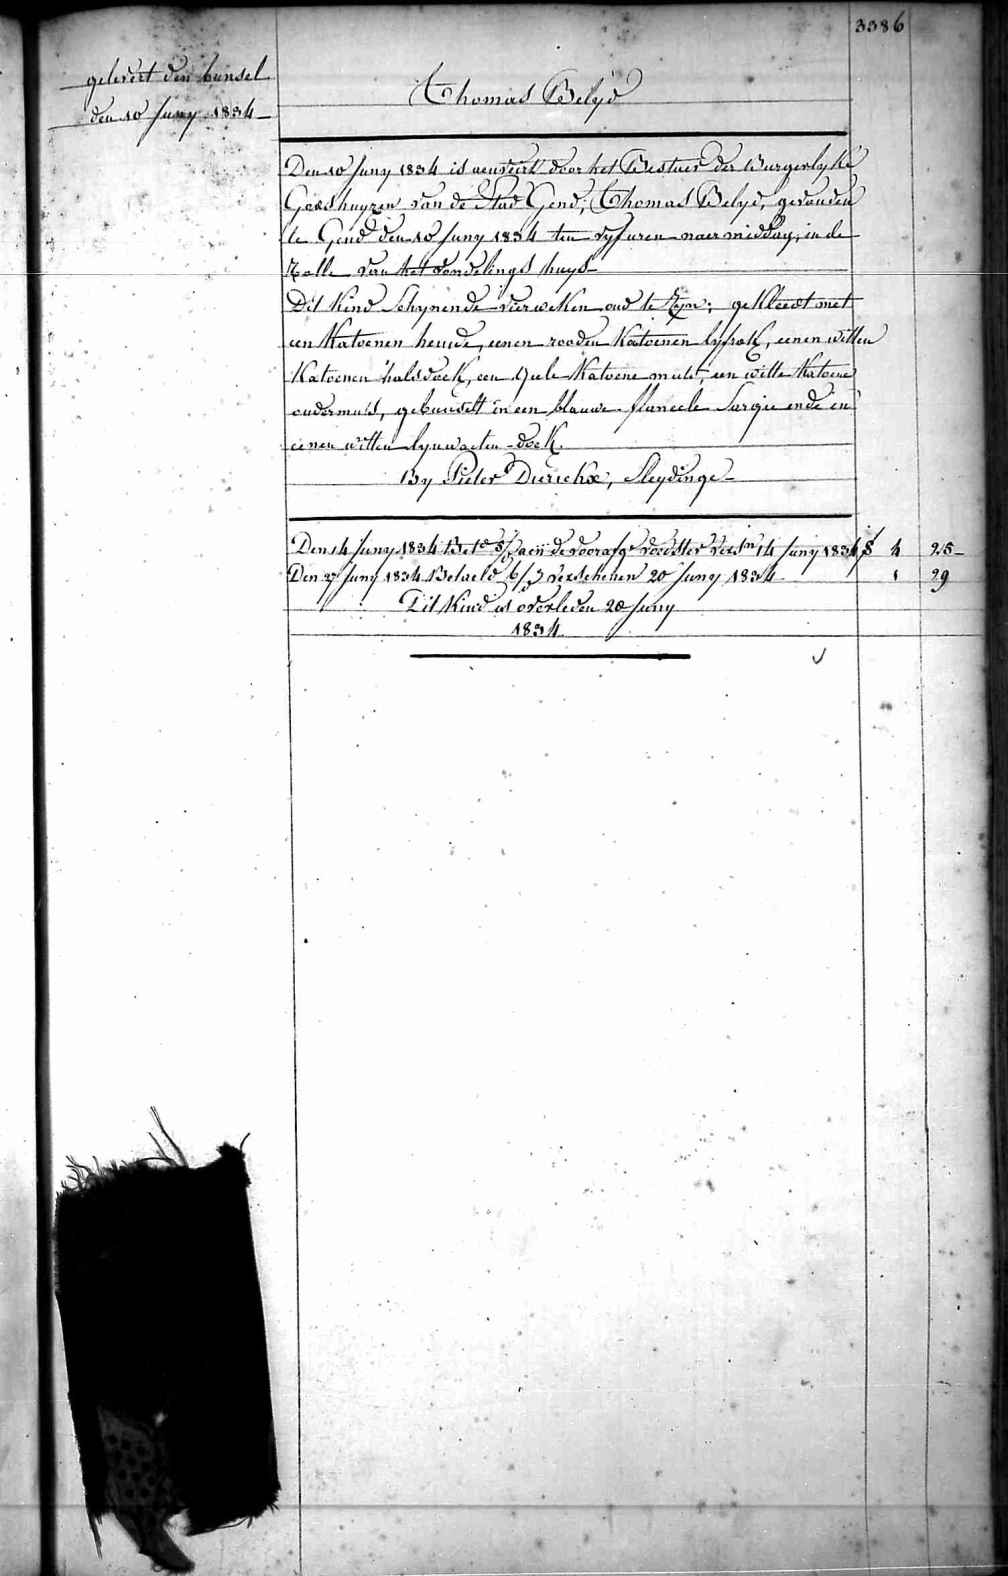 3386
gelevert den bunsel
den 10 Juny 1834
Thomas Belyd
Den 10 Juny 1834 is aenveirt door het Bestuer der Burgerlyke
Godshuyzen van de Stad Gend, Thomas Belyd, gevonden
te Gend den 10 Juny 1834 ten vyf uren naermiddag, in de
Rolle van het vondelings huys
Dit Kind Schynende vier weken oud te zyn; gekleedt met
een Katoenen hemde, eenen rooden Katoenen lyfrok, eenen witten
Katoenen halsdoek, een Geele Katoene muts, een witte Katoene
ondermuts, gebunselt in een blauwe flaneele Sargie ende in
eenen witten lynwaeten doek.
By Pieter Dierickx, Sleydinge
Den 14 Juny 1834 Bet. aen de voedster 14 Juny 1834 4 25
Den 27 Juny 1834 Betaeld 6/ verschenen 20 Juny 1834 1 29
Dit Kind is overleden 20 Juny
1834